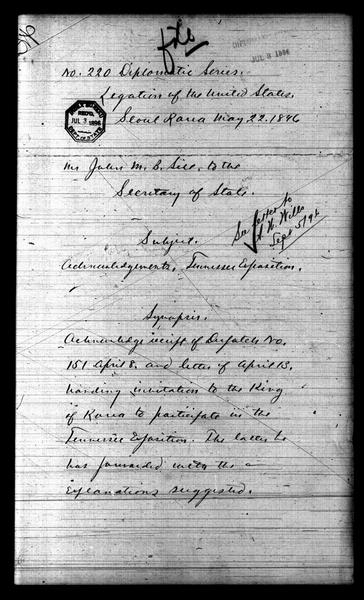 file
JUL 3 1896
No. 220 Diplomatic Series.
Legation of the United States.
Seoul Korea May 22. 1896
JUL 3 1896
DEP'T OF STATE
Mr John M. B. Sill, to the
Secretary of State.
See letter to
A. W. Wills
Sept 5/96
Subject.
Acknowledgements, Tennessee Exposition.
Synopsis.
Acknowledge receipt of Despatch No.
151 April 8. and letter of April 13.
handing invitation to the King
of Korea to participate in the
Tennessee Exposition. The latter he
has forwarded with the
explanations suggested.